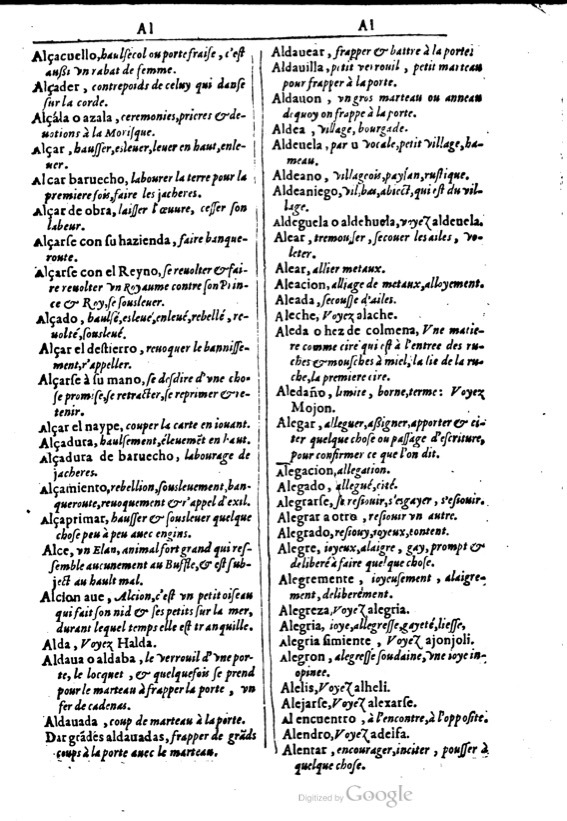 Al
Alçacuello, haulsecol ou porte fraise, c'est
aussi vn rabat de femme.
Alçader, contrepoids de celuy qui danse
sur la corde.
Alçàla o azala, ceremonies, prieres & de-
uotions à la Morisque.
Alçar, hausser, esleuer, leuer en haut, enle-
uer.
Alcar baruecho, labourer la terre pour la
premiere fois, faire les jacheres.
Alçar de obra, laisser l'œuure, cesser son
labeur.
Alçarse con su hazienda, faire banque-
route.
Alçarse con el Reyno, se reuolter & fai-
re reuolter vn Royaume contre son Prin-
ce & Roy, se sousleuer.
Alçado, haulsé, esleué, enleué, rebellé, re-
uolté, sousleué.
Alçar el destierro, reuoquer le bannisse-
ment, r'appeller.
Alçarse à su mano, se desdire d'vne cho-
se promise, se retracter, se reprimer & re-
tenir.
Alçar el naype, couper la carte en iouant.
Alçadura, haulsement, éleuemẽt en haut.
Alçadura de baruecho, labourage de
jacheres.
Alçamiento, rebellion, sousleuement, ban-
queroute, reuoquement & r'appel d'exil.
Alçaprimar, hausser & sousleuer quelque
chose peu à peu auec engins.
Alce, vn Elan, animal fort grand qui res-
semble aucunement au Buffle, & est sub-
ject au hault mal.
Alcion aue, Alcion, c'est vn petit oiseau
qui fait son nid & ses petits sur la mer,
durant lequel temps elle est tranquille.
Alda, Voyez Halda.
Aldaua o aldaba, le verrouil d'vne por-
te, le locquet, & quelquefois se prend
pour le marteau à frapper la porte, vn
fer de cadenas.
Aldauada, coup de marteau à la porte.
Dar grãdes aldauadas, frapper de grãds
coups à la porte auec le marteau.
Al
Aldauear, frapper & battre à la porte.
Aldauilla, petit verrouil, petit marteau
pour frapper à la porte.
Aldauon, vn gros marteau ou anneau
dequoy on frappe à la porte.
Aldea, village, bourgade.
Aldeuela, par u vocale, petit village, ha-
meau.
Aldeano, villageois, paysan, rustique.
Aldeaniego, vil, bas, abiect, qui est du vil-
lage.
Aldeguela o aldehuela, voyez aldeuela.
Alear, tremousser, secouer les ailes, vo-
leter.
Alear, allier metaux.
Aleacion, alliage de metaux, alloyement.
Aleada, secousse d'ailes.
Aleche, Voyez alache.
Aleda o hez de colmena, Vne matie-
re comme cire qui est à l'entree des ru-
ches & mousches à miel, la lie de la ru-
che, la premiere cire.
Aledaño, limite, borne, terme: Voyez
Mojon.
Alegar, alleguer, assigner, apporter & ci-
ter quelque chose ou passage d'escriture,
pour confirmer ce que l'on dit.
Alegacion, allegation.
Alegado, allegué, cité.
Alegrarse, se resiouir, s'esgayer, s'esiouir.
Alegrar a otro, resiouir vn autre.
Alegrado, resiouy, ioyeux, content.
Alegre, ioyeux, alaigre, gay, prompt &
deliberé à faire quelque chose.
Alegremente, ioyeusement, alaigre-
ment, deliberément.
Alegreza, Voyez alegria.
Alegria, ioye, allegresse, gayeté, liesse,
Alegria simiente, Voyez ajonjoli.
Alegron, alegresse soudaine, vne ioye in-
opinee.
Alelis, Voyez alheli.
Alejarse, Voyez alexarse.
Al encuentro, à l'encontre, à l'opposite.
Alendro, Voyez adelfa.
Alentar, encourager, inciter, pousser à
quelque chose.
Digitized by Google